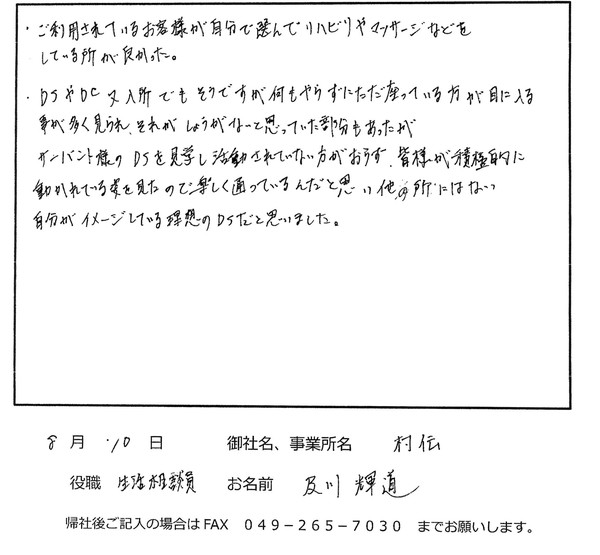 ・ご利用されているお客様が自分で選んでリハビリやマッサージなどを
している所が良かった。
・DSやDC又入所でもそうですが何もやらずにただ座っている方が目に入る
事が多く見られ、それがしょうがないと思っていた部分もあったが
サーバント様のDSを見学し活動されていない方がおらず、皆様が積極的に
動かれている姿を見たので楽しく通っているんだと思い他の所にはない
自分がイメージしている理想のDSだと思いました。
8月10日 御社名、事業所名 村伝
役職 生活相談員 お名前 及川 輝道
帰社後ご記入の場合はFAX 049-265-7030 までお願いします。